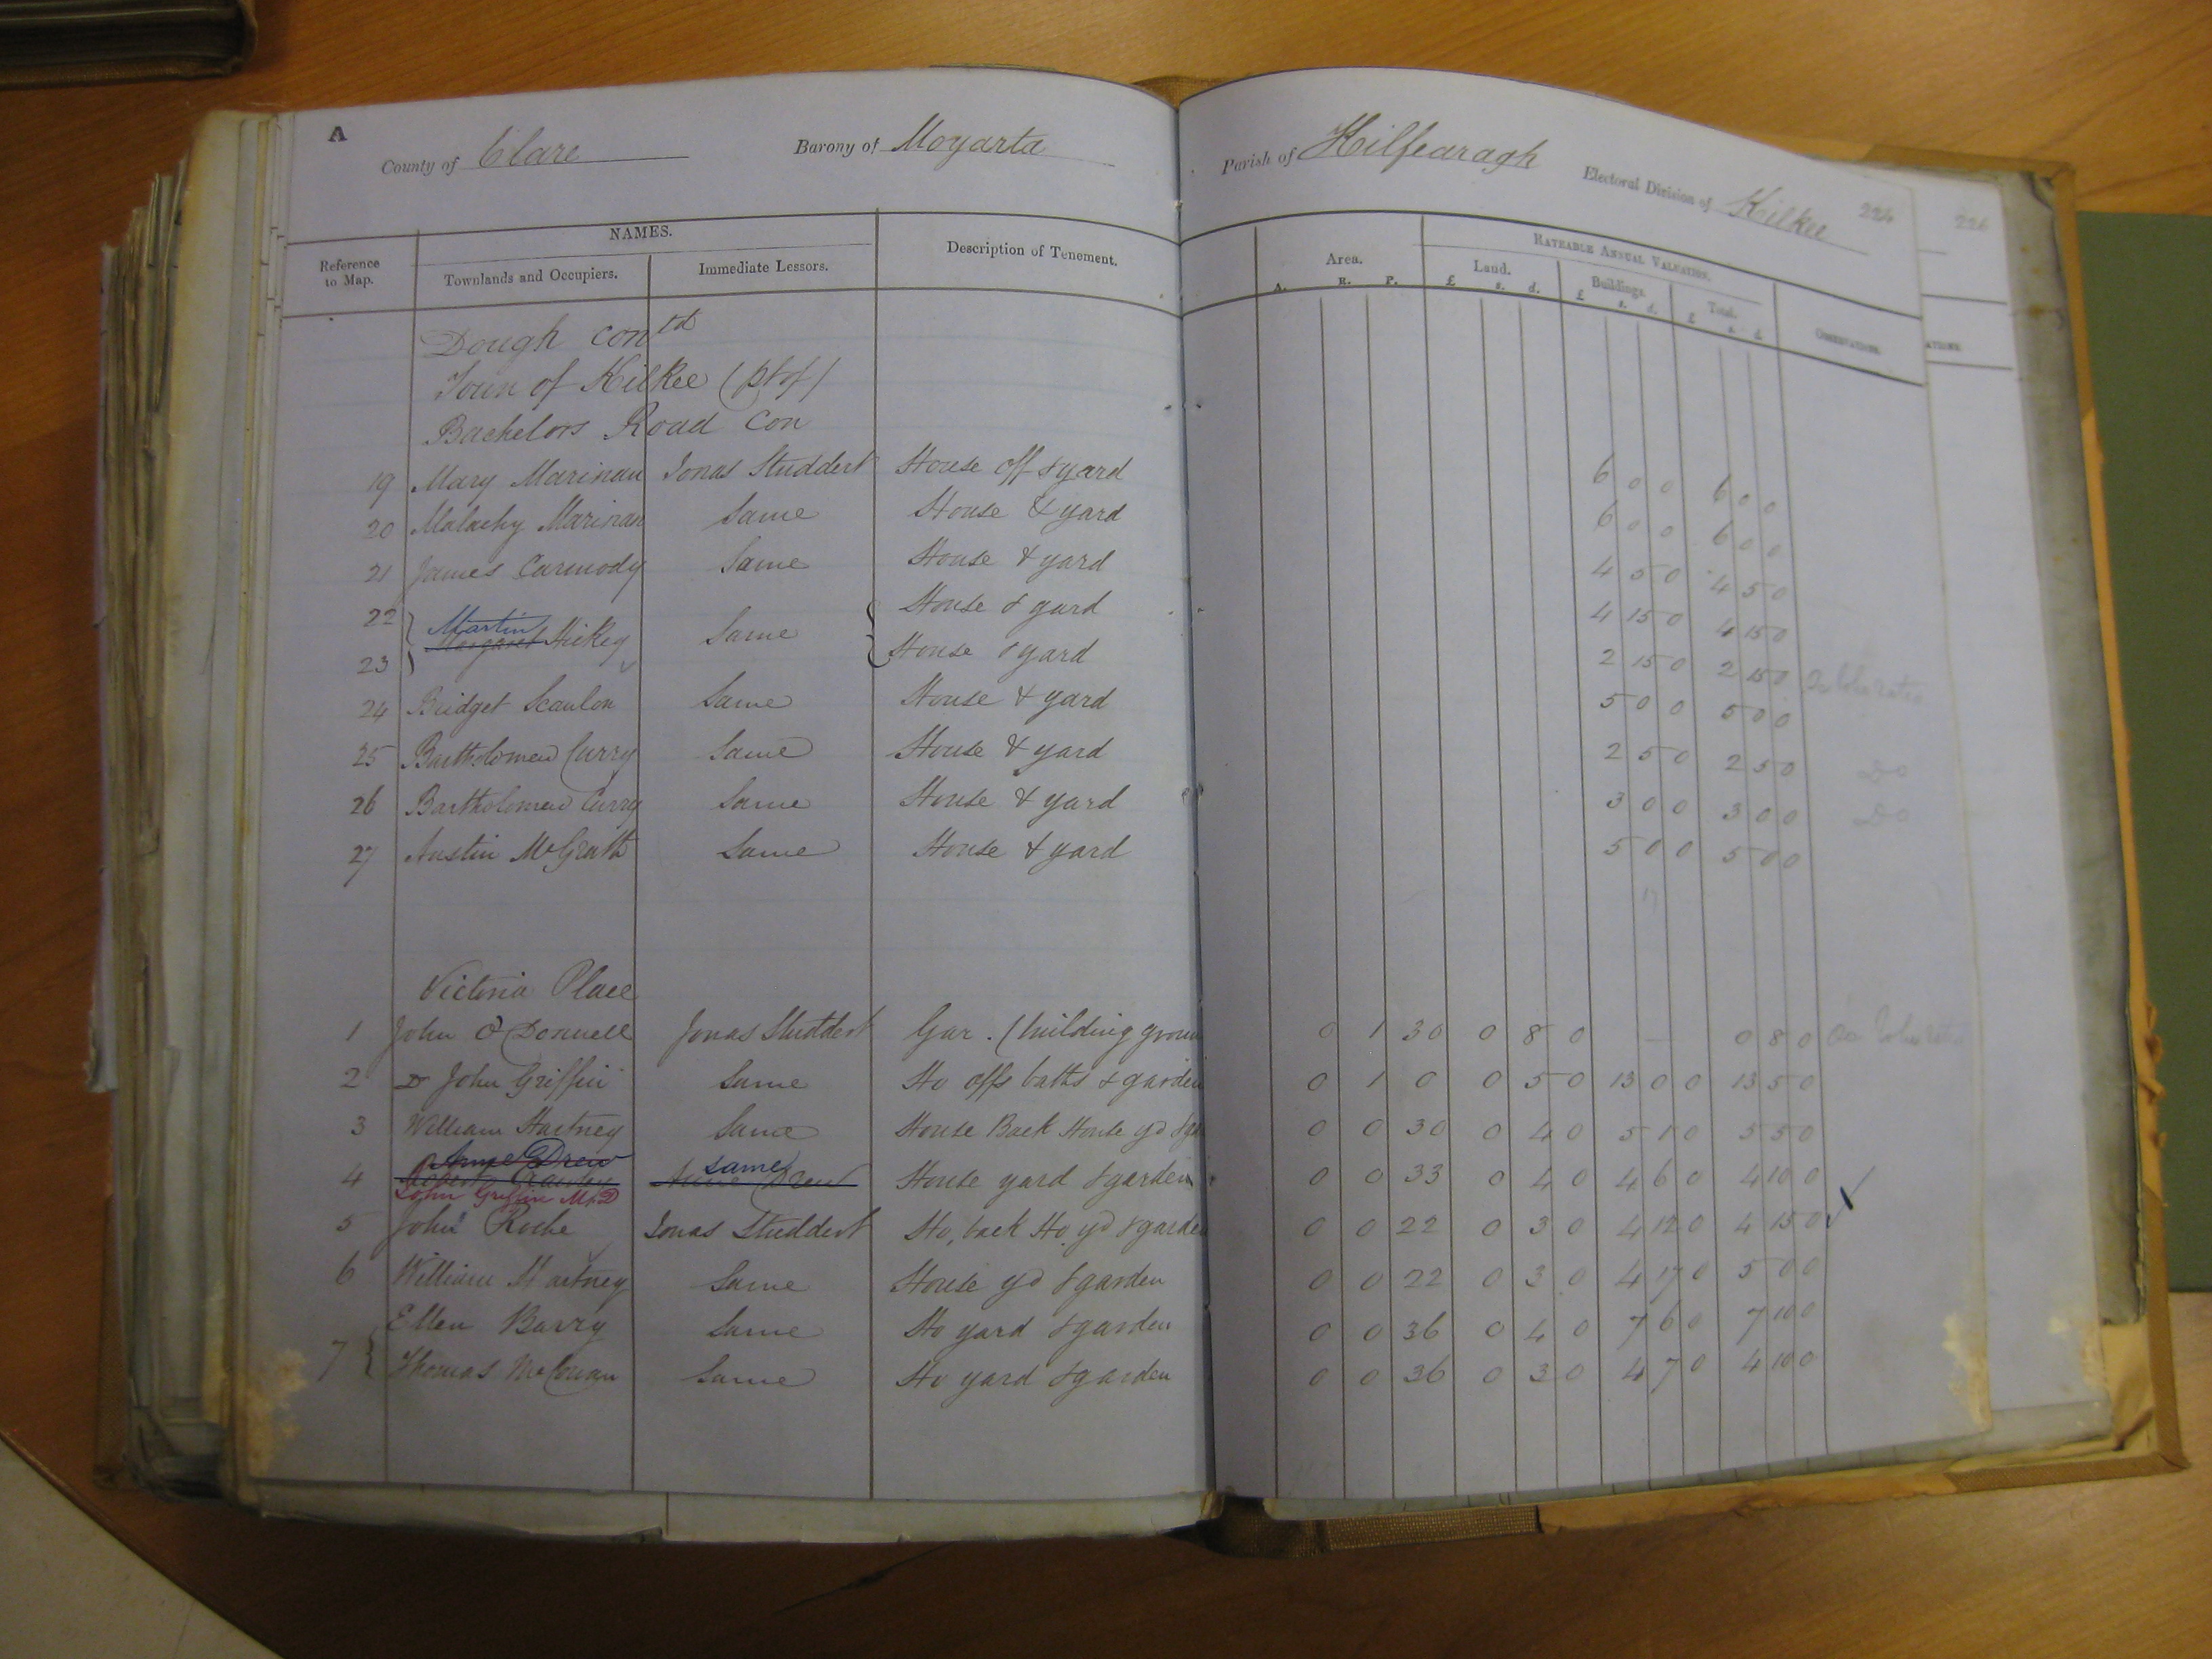 A
County of Clare Barony of Moyarta Parish of Kilfearagh Electoral Division of Kilkee 226 226
NAMES. RATEABLE ANNUAL VALUATION.
Reference to Map. Townlands and Occupiers. Immediate Lessors. Description of Tenement. Area. Land. Buildings. Total. OBSERVATIONS. ATIONS
A. R. P. £ s. d. £ s. d. £ s. d.
Dough contd
Town of Kilkee (pt of)
Bachelors Road Con
19 Mary Marinan Jonas Studdert House off & yard 6 0 0 6 0 0
20 Malachy Marinan Same House & yard 6 0 0 6 0 0
21 James Carmody Same House & yard 4 5 0 4 5 0
22 Martin House & yard 4 15 0 4 15 0
Margaret Hickey Same
23 House & yard 2 15 0 2 15 0
24 Bridget Scanlon Same House & yard 5 0 0 5 0 0
25 Bartholomew Curry Same House & yard 2 5 0 2 5 0 Do
26 Bartholomew Curry Same House & yard 3 0 0 3 0 0 Do
27 Austin McGrath Same House & yard 5 0 0 5 0 0
17
Victoria Place
1 John O'Donnell Jonas Studdert Gar. (building groun 0 1 30 0 8 0 — 0 8 0
2 Dr John Griffin Same Ho offs baths & garden 0 1 0 0 5 0 13 0 0 13 5 0
3 William Hartney Same House Back House yd & ga 0 0 30 0 4 0 5 1 0 5 5 0
Anne Drew Same
4 Robert Anne Drew House yard & garden 0 0 33 0 4 0 4 6 0 4 10 0
John Griffin M.D
5 John Roche Jonas Studdert Ho, back Ho yd & garden 0 0 22 0 3 0 4 12 0 4 15 0
6 William Hartney Same House yd & garden 0 0 22 0 3 0 4 17 0 5 0 0
Ellen Barry Same Ho yard & garden 0 0 36 0 4 0 7 6 0 7 10 0
7 Thomas Same Ho yard & garden 0 0 36 0 3 0 4 7 0 4 10 0